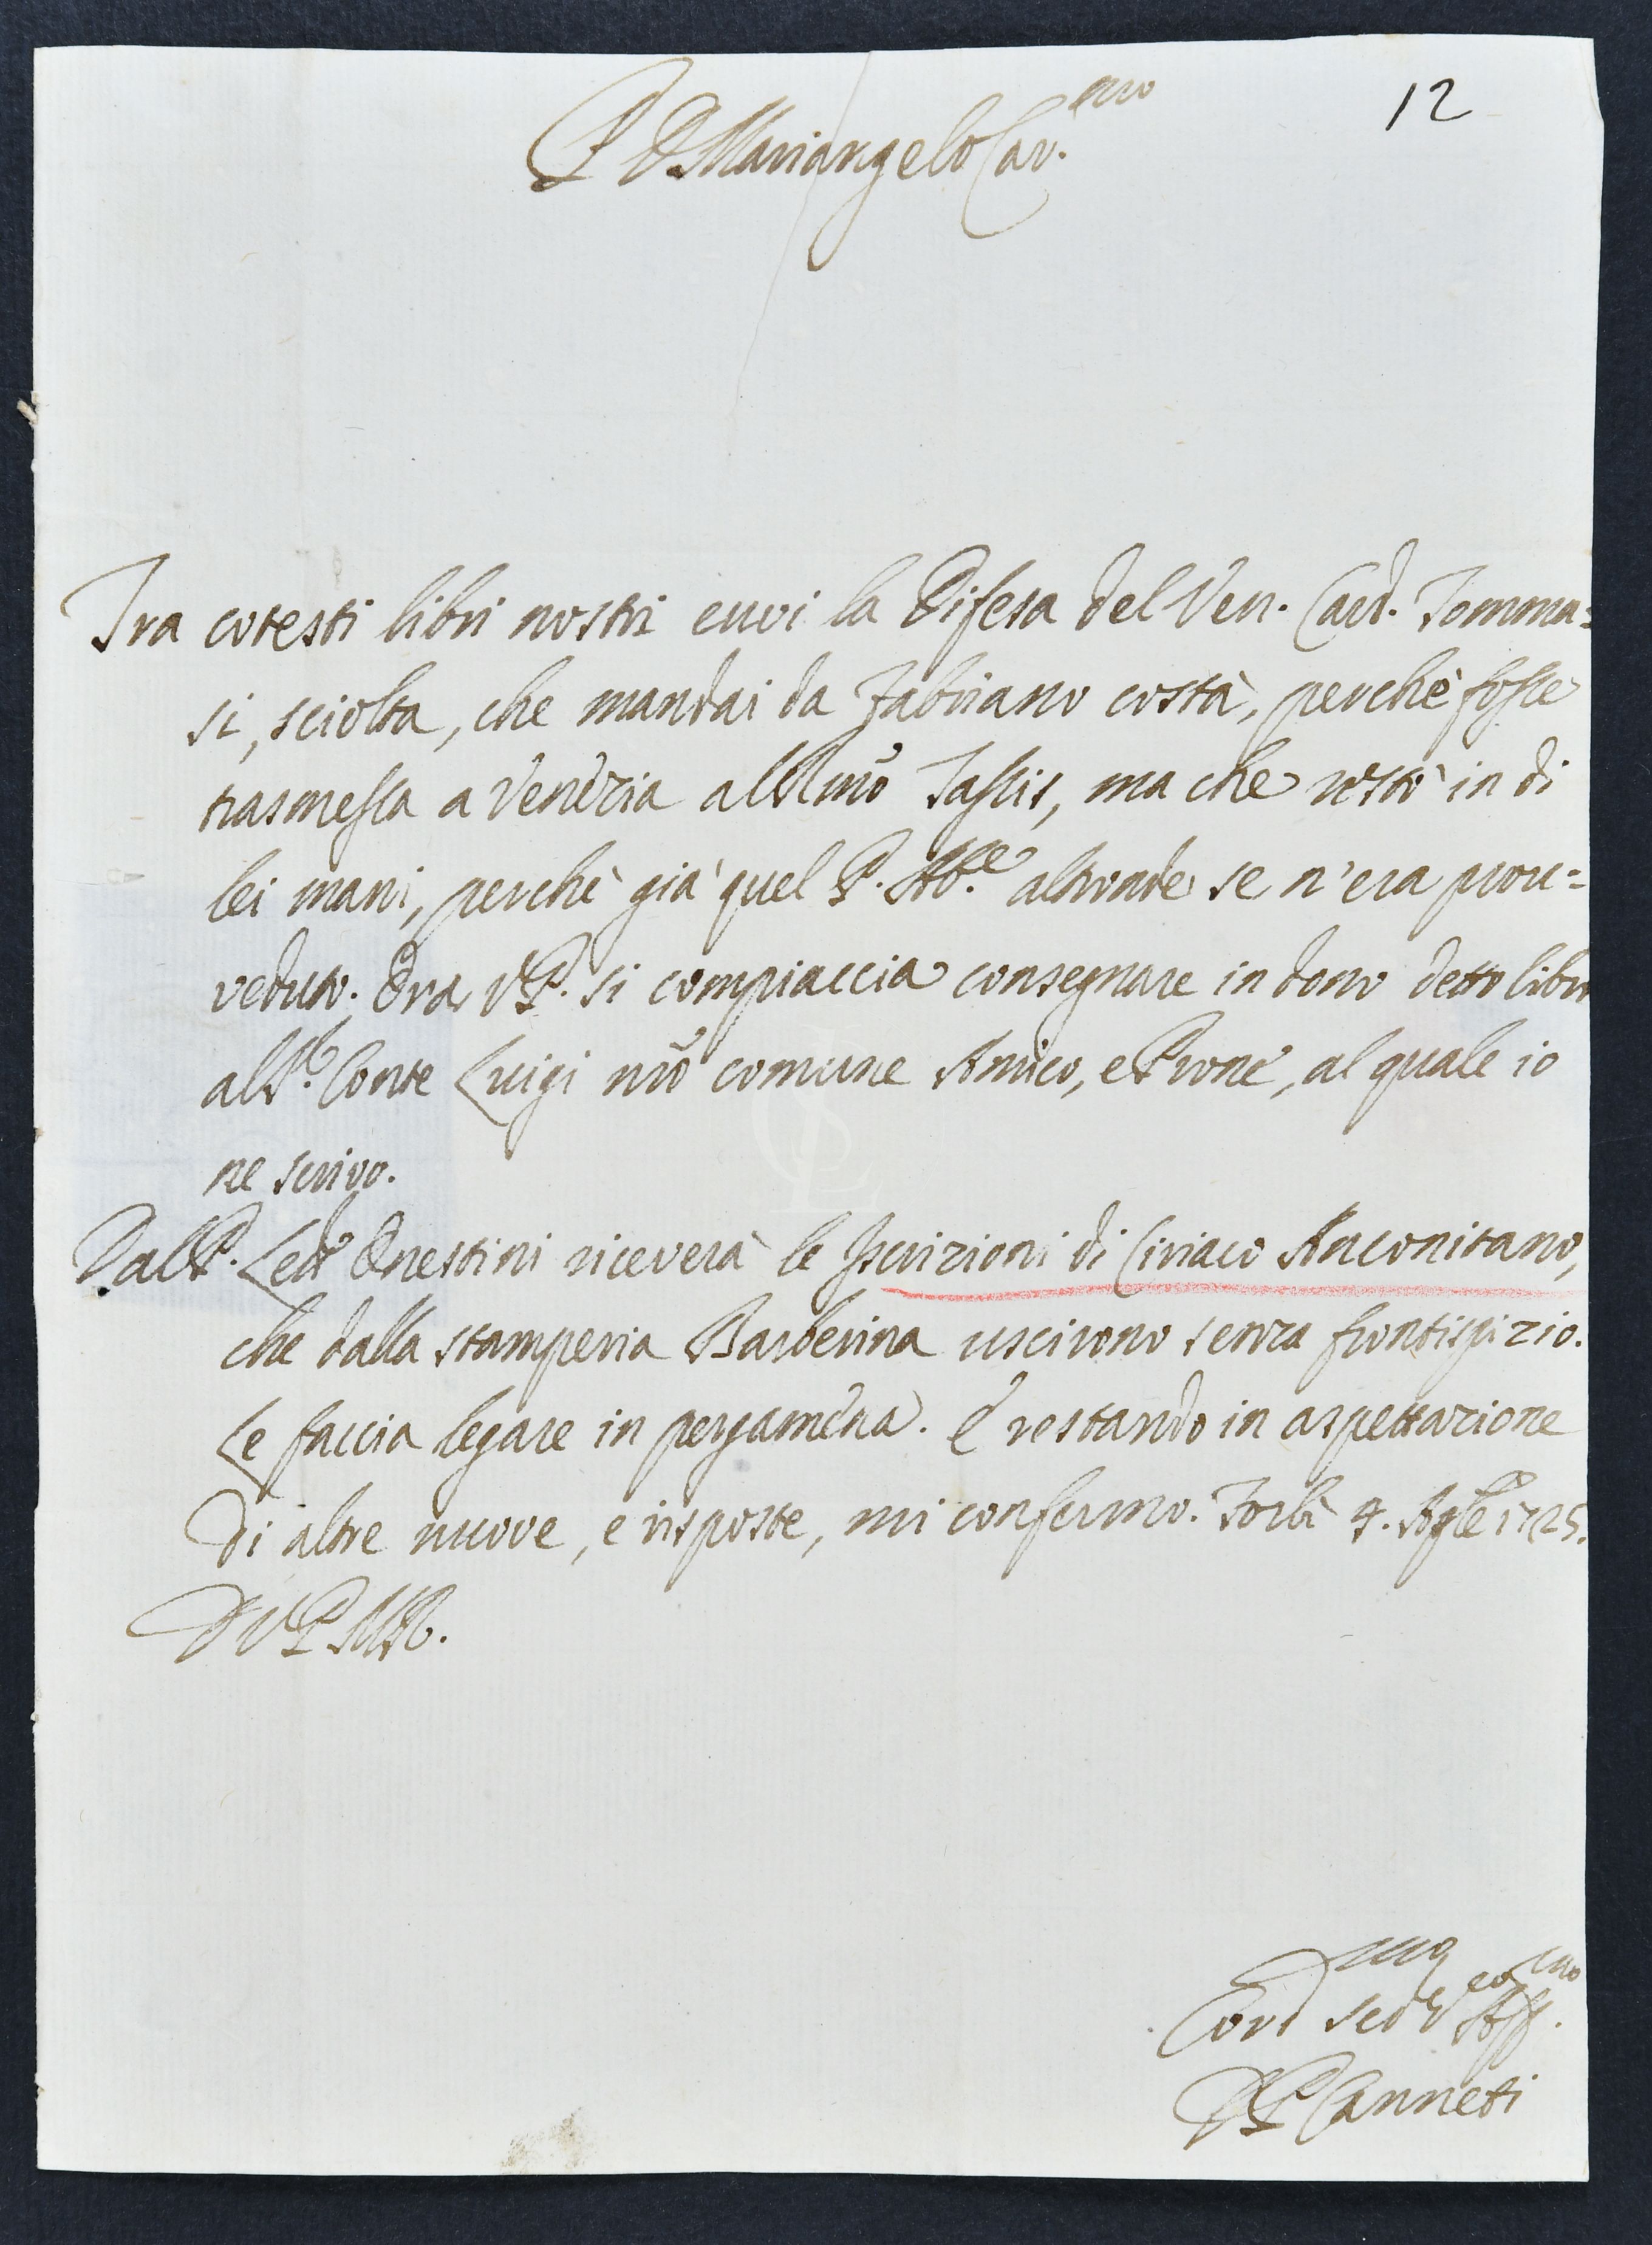 12
P. D. Mariangelo Car.mo
Tra cotesti libri nostri euui la Difesa del Ven. Card. Tomma=
si, sciolta, che mandai da Fabriano costà, perchè fosse
trasmessa a Venezia al Rmo Tassis, ma che restò in di
lei mani, perchè già quel P. Abe. altronde se n'era prou=
veduto. Ora VP. si compiaccia consegnare in dono detto libro
al Sr. Conte Luigi nro comune Amico, e Prone, al quale io
ne scrivo.
Dal P. Led Onestini riceverà le Iscrizioni di Ciriaco Anconitano,
che dalla stamperia Barberina uscirono senza frontispizio.
Le faccia legare in pergamena. E restando in aspettazione
di altre nuove, e risposte, mi confermo. Forlì 4. Aple 1725.
D VP MR.
Aff.mo
D P Canneti